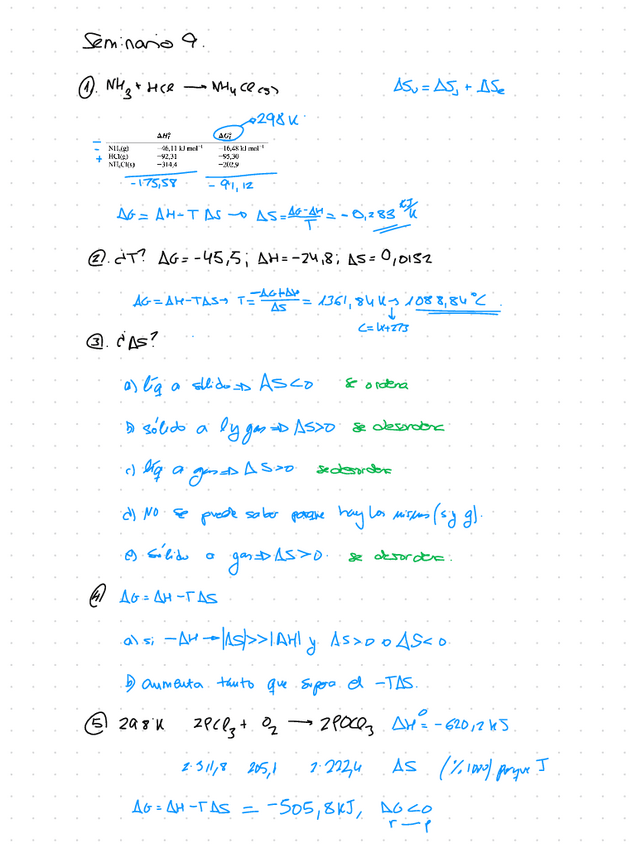 Seminario 9.
1). NH₃ + HCl → NH₄Cl (s)
ΔSᵤ = ΔSₛ + ΔSₑ
298 K
ΔH°f ΔG°f
NH₃(g) −46,11 kJ mol⁻¹ −16,48 kJ mol⁻¹
HCl(g) −92,31 −95,30
NH₄Cl(s) −314,4 −202,9
-175,58 -91,12
ΔG = ΔH-T ΔS → ΔS = ΔG-ΔH/T = -0,283 kJ/K
2). ¿T? ΔG = -45,5; ΔH = -24,8; ΔS = 0,0152
ΔG = ΔH-TΔS → T = -ΔG+ΔH/ΔS = 1361,84 K → 1088,84 °C.
C = K+273
3). ¿ΔS?
a) líq a sólido ⇒ ΔS<0 se ordena
b) sólido a l y gas ⇒ ΔS>0 se desordena
c) líq a gas ⇒ ΔS>0 se desordena
d) NO se puede saber porque hay los mismos (s y g).
e) sólido a gas ⇒ ΔS>0. se desordena.
4) ΔG = ΔH-TΔS
a) si -ΔH → |ΔS|>>|ΔH| y ΔS>0 o ΔS<0
b) aumenta tanto que supera el -TΔS.
5) 298 K 2PCl₃ + O₂ → 2POCl₃ ΔH° = -620,2 kJ
2·311,8 205,1 2·222,4 ΔS (%1000) porque J
ΔG = ΔH-TΔS = -505,8 kJ, ΔG<0
r → p